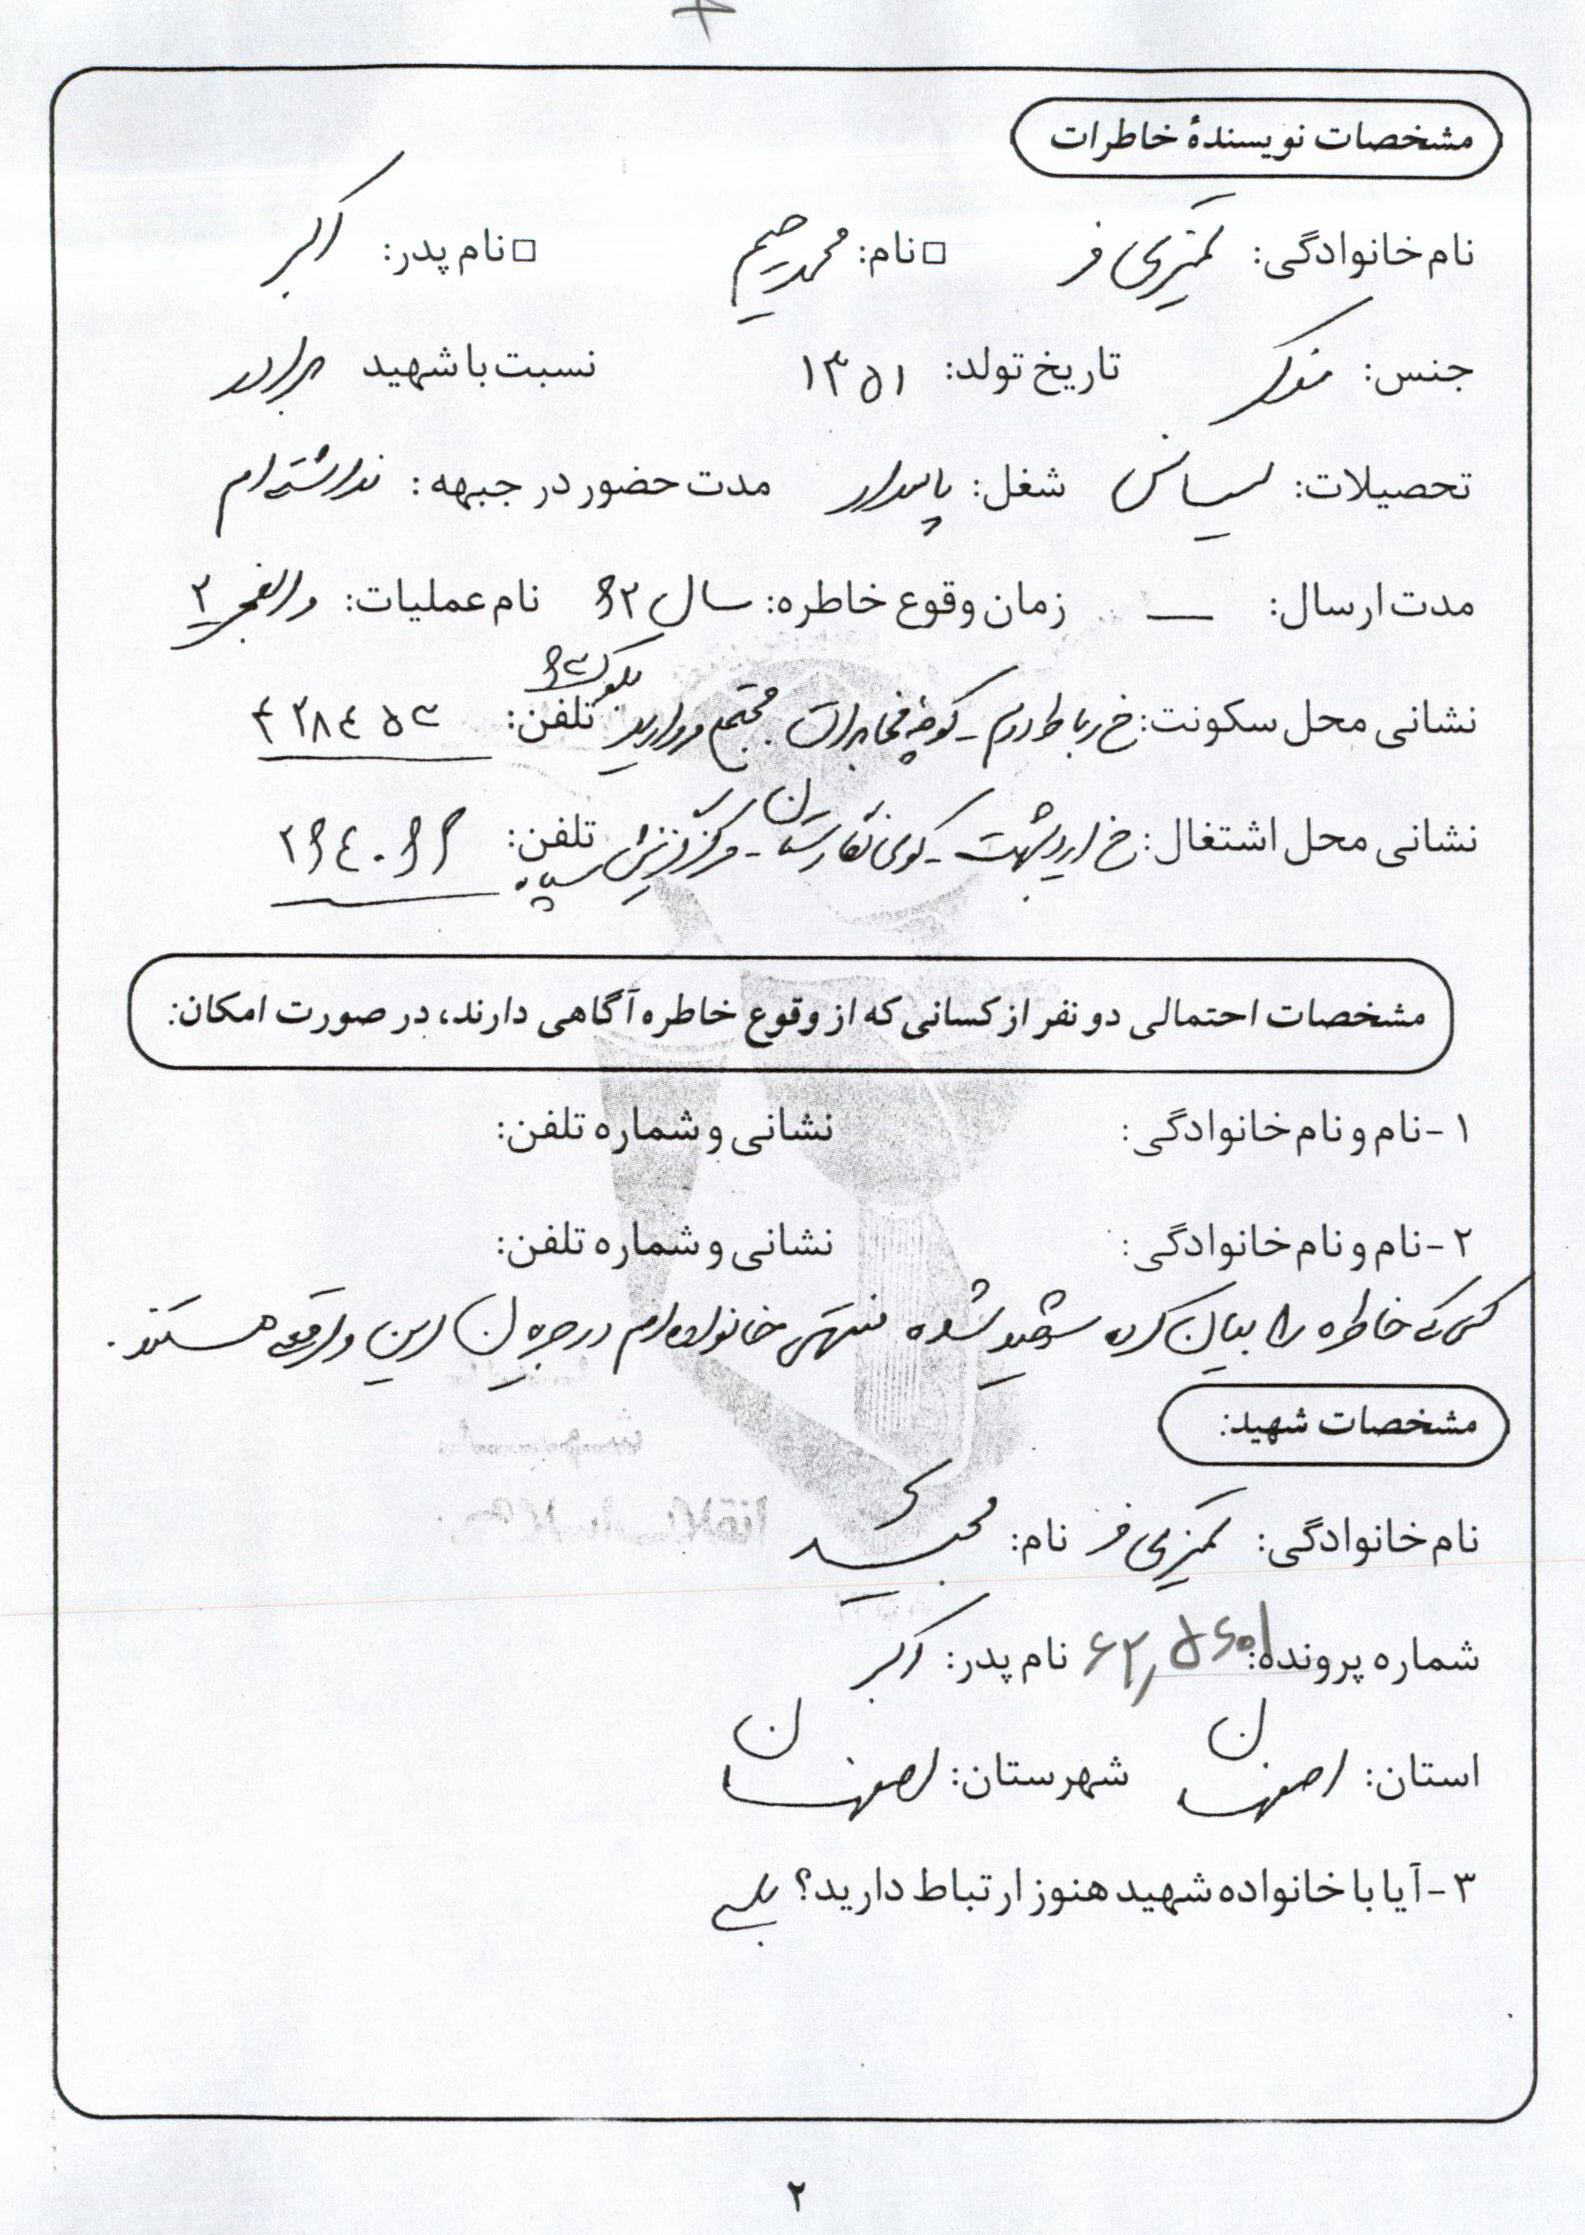 مشخصات نویسندهٔ خاطرات
نام خانوادگی: کمتری فر □ نام: محمد رحیم □ نام پدر: اکبر
جنس: مذکر تاریخ تولد: ۱۳۵۱ نسبت با شهید برادر
تحصیلات: لیسانس شغل: پاسدار مدت حضور در جبهه: نداشته‌ام
مدت ارسال: — زمان وقوع خاطره: سال ۶۲ نام عملیات: والفجر ۲
نشانی محل سکونت: خ رباط دوم - کوچه مخابرات مجتمع مروارید بلوک تلفن:
نشانی محل اشتغال: خ اردیبهشت - کوی نگارستان - مرکز گزینش سپاه تلفن: ۲۶۴۰۶۶
مشخصات احتمالی دو نفر از کسانی که از وقوع خاطره آگاهی دارند، در صورت امکان:
۱- نام و نام خانوادگی: نشانی و شماره تلفن:
۲- نام و نام خانوادگی: نشانی و شماره تلفن:
کسی که خاطره را بیان کرده شهید شده منتهی خانواده‌ام در جریان این واقعه هستند.
مشخصات شهید:
نام خانوادگی: کمتری فر نام:
شماره پرونده: نام پدر: اکبر
استان: اصفهان شهرستان: اصفهان
۳- آیا با خانواده شهید هنوز ارتباط دارید؟ بلی
۲